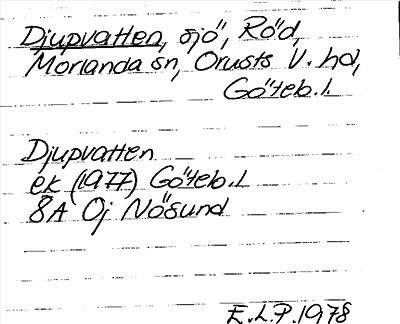 Djupvatten, sjö, Röd,
Morlanda sn, Orusts V. hd,
Göteb. l.
Djupvatten
ek (1977) Göteb. l
8A Oj Nösund
E.L.P. 1978